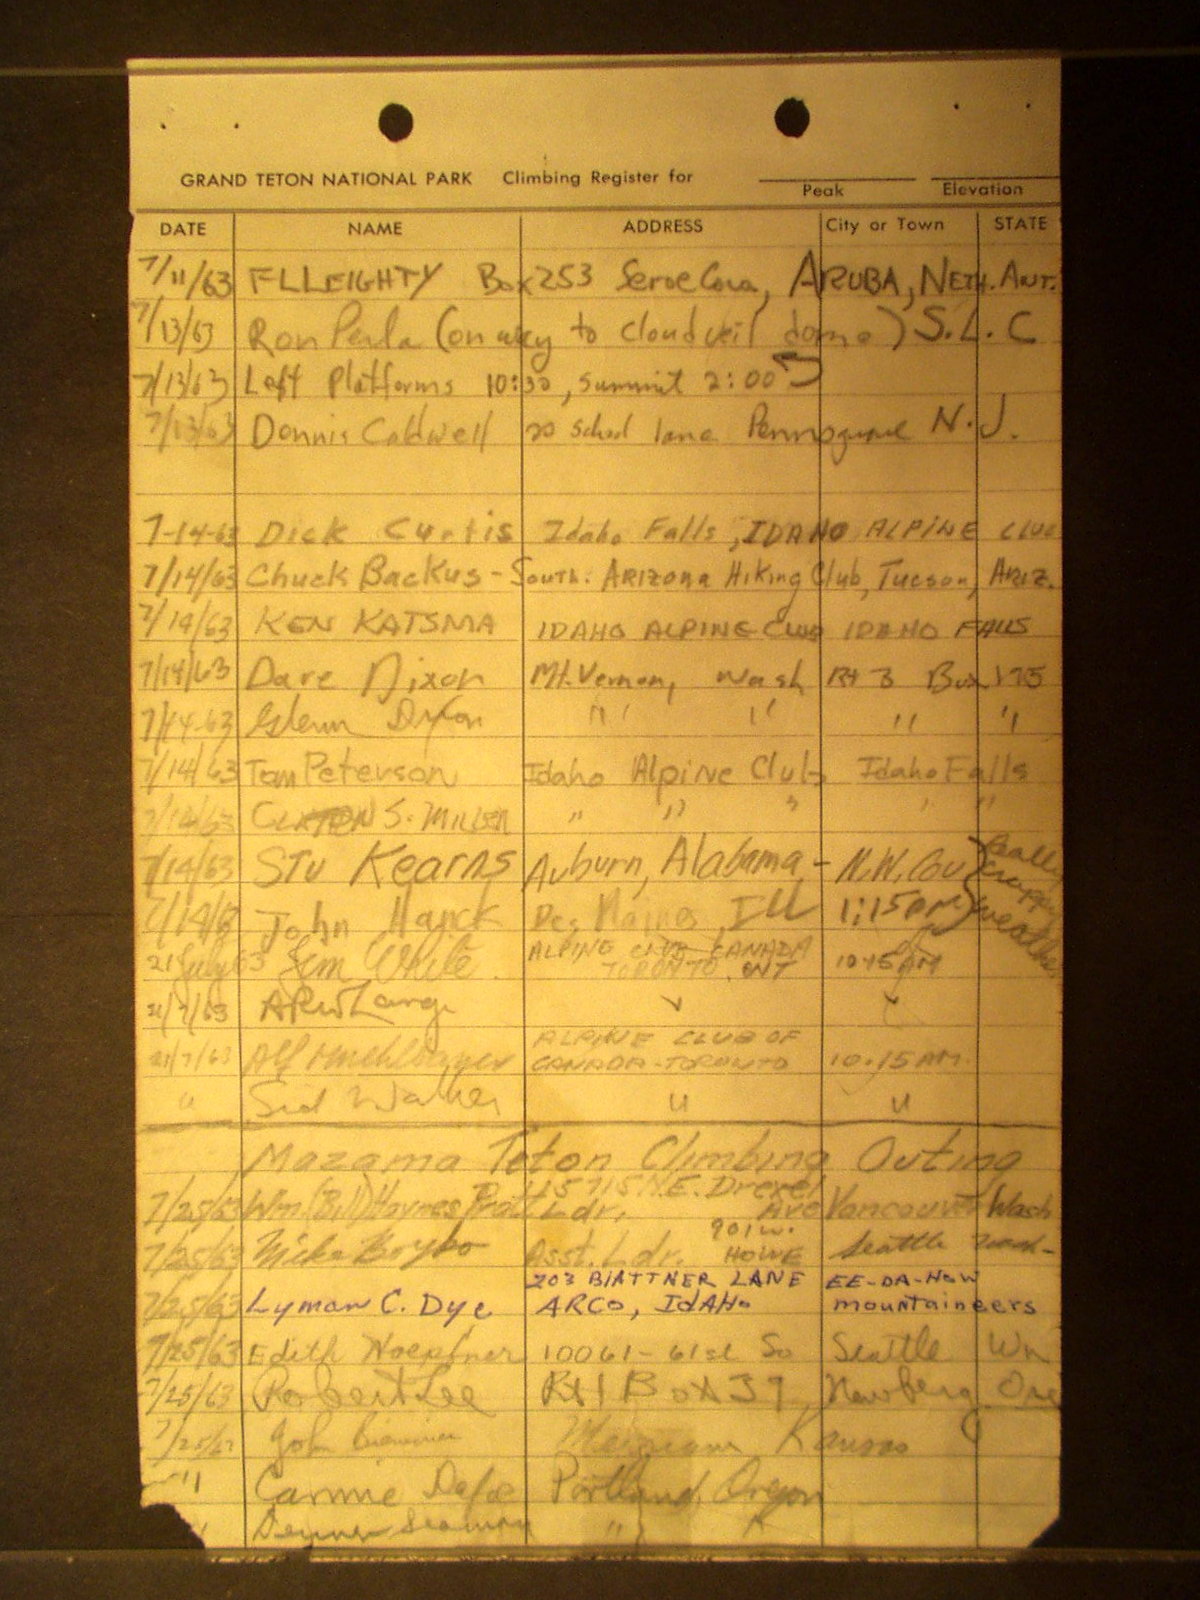 GRAND TETON NATIONAL PARK Climbing Register for
Peak Elevation
DATE NAME ADDRESS City or Town STATE
7/11/63 F L LEIGHTY Box 253 ARUBA, NETH. ANT.
7/13/63 Ron Perla (on way to cloudveil dome) S.L.C
7/13/63 Left Platforms 10:30, summit 2:00
7/13/63 Dennis Caldwell 20 school lane N.J.
7-14-63 Dick Curtis Idaho Falls, IDAHO ALPINE CLUB
7/14/63 Chuck Backus - South. ARIZONA Hiking Club, Tucson, ARIZ.
7/14/63 KEN KATSMA IDAHO ALPINE CLUB IDAHO FALLS
7/14/63 Dave Dixon Mt. Vernon, Wash Rt 3 Box 175
7/14-63 Glenn Dixon " " " "
7/14/63 Tom Peterson Idaho Alpine Club Idaho Falls
7/14/63 S. MILLER " " " " "
7/14/63 STU Kearns Auburn, Alabama - N.W. Cou
7/14/63 John Hauck Des Plaines, Ill 1:15 PM crappy weather
21 July 63 Jim White ALPINE CLUB CANADA TORONTO ONT 10:15 AM
21/7/63
21/7/63 Alf ALPINE CLUB OF CANADA - TORONTO 10:15 AM.
" Sid Walker " "
Mazama Teton Climbing Outing
7/25/63 Wm. (Bill) Haynes Pratt Ldr. 15715 N.E. Drexel Ave Vancouver Wash
7/25/63 Mike Asst. Ldr. 901 W. HOWE Seattle Wash-
7/25/63 Lyman C. Dye 203 BIATTNER LANE ARCO, IDAHO EE-DA-HOW mountaineers
7/25/63 Edith Hoeptner 10061 - 61st So Seattle Wn
7/25/63 Robert Lee Rt 1 Box 39 Newberg Ore
7/25/63 John Merriam Kansas
" Carmie Dafoe Portland, Oregon
" Seaman " "